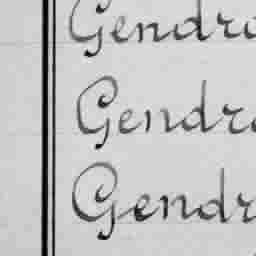 Gendro
Gendro
Gendr